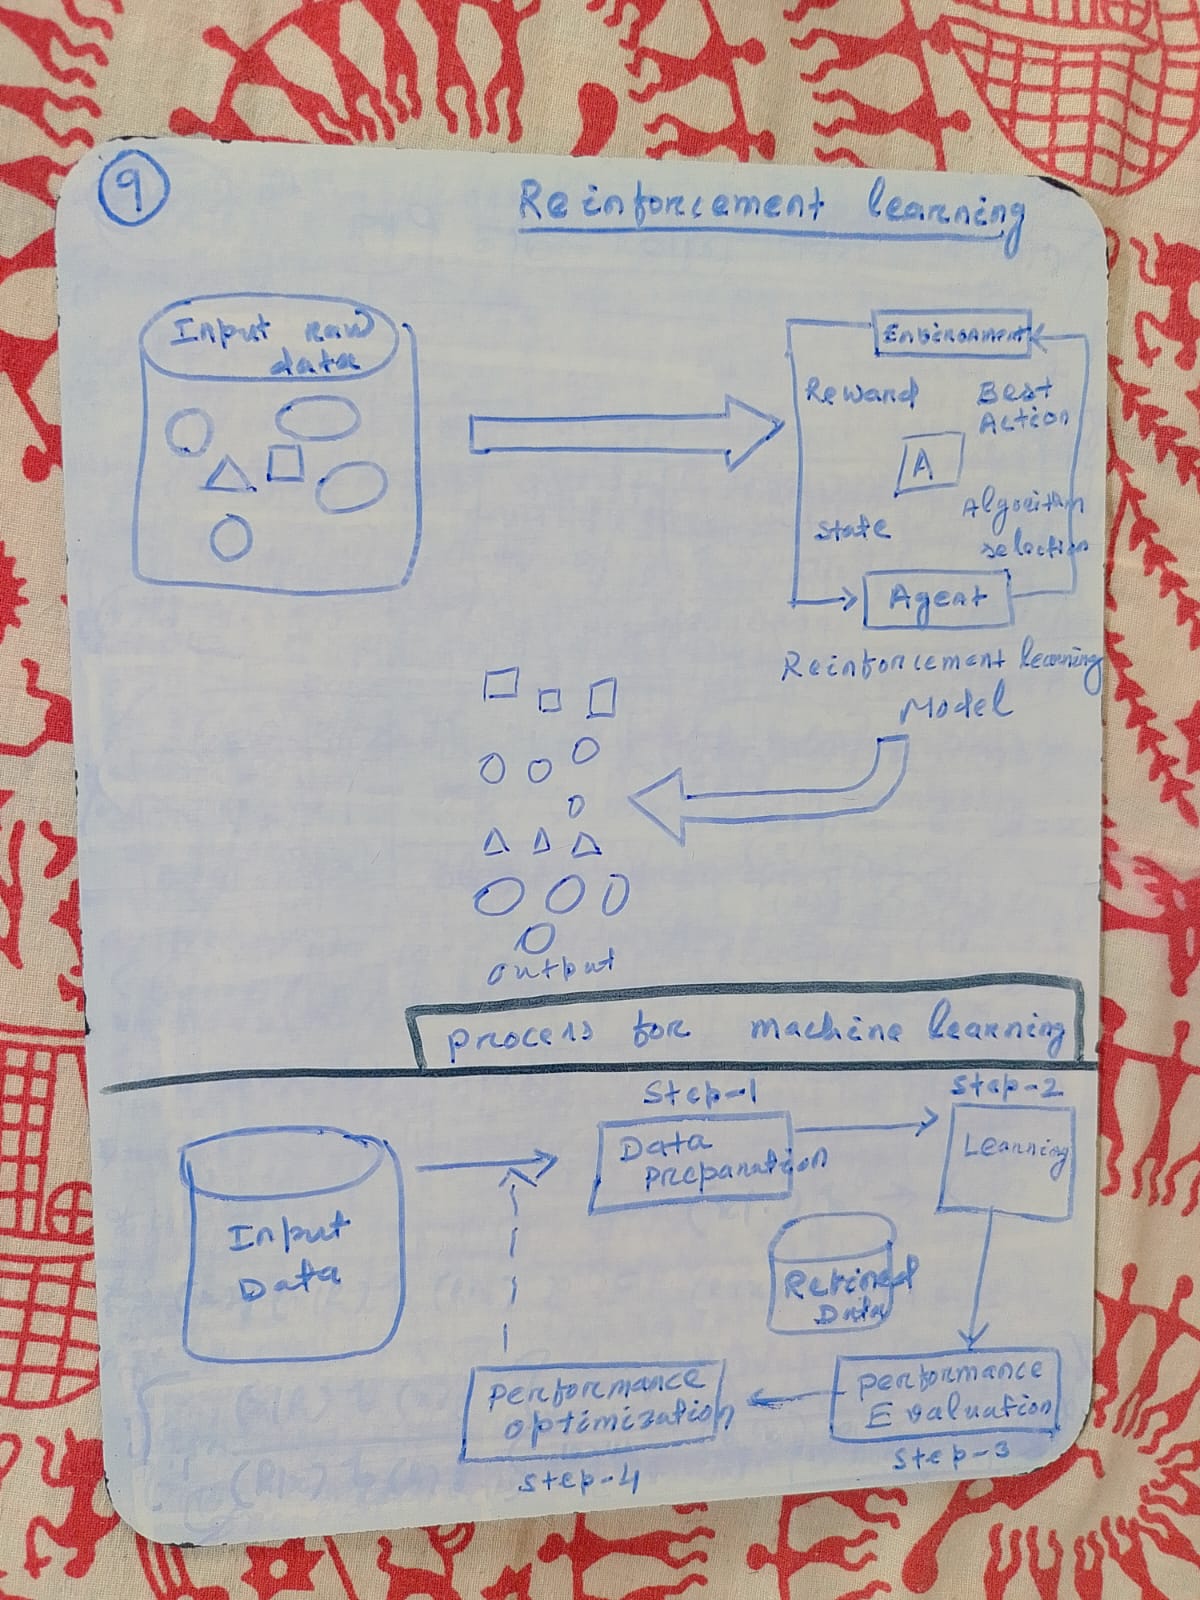 9
Reinforcement learning
Input raw
data
Environment
Reward
Best
Action
A
Algorithm
selection
State
Agent
Reinforcement learning
Model
output
process for machine learning
Step-1
Step-2
Data
preparation
Learning
Input
Data
Data
performance
optimization
performance
Evaluation
Step-3
Step-4